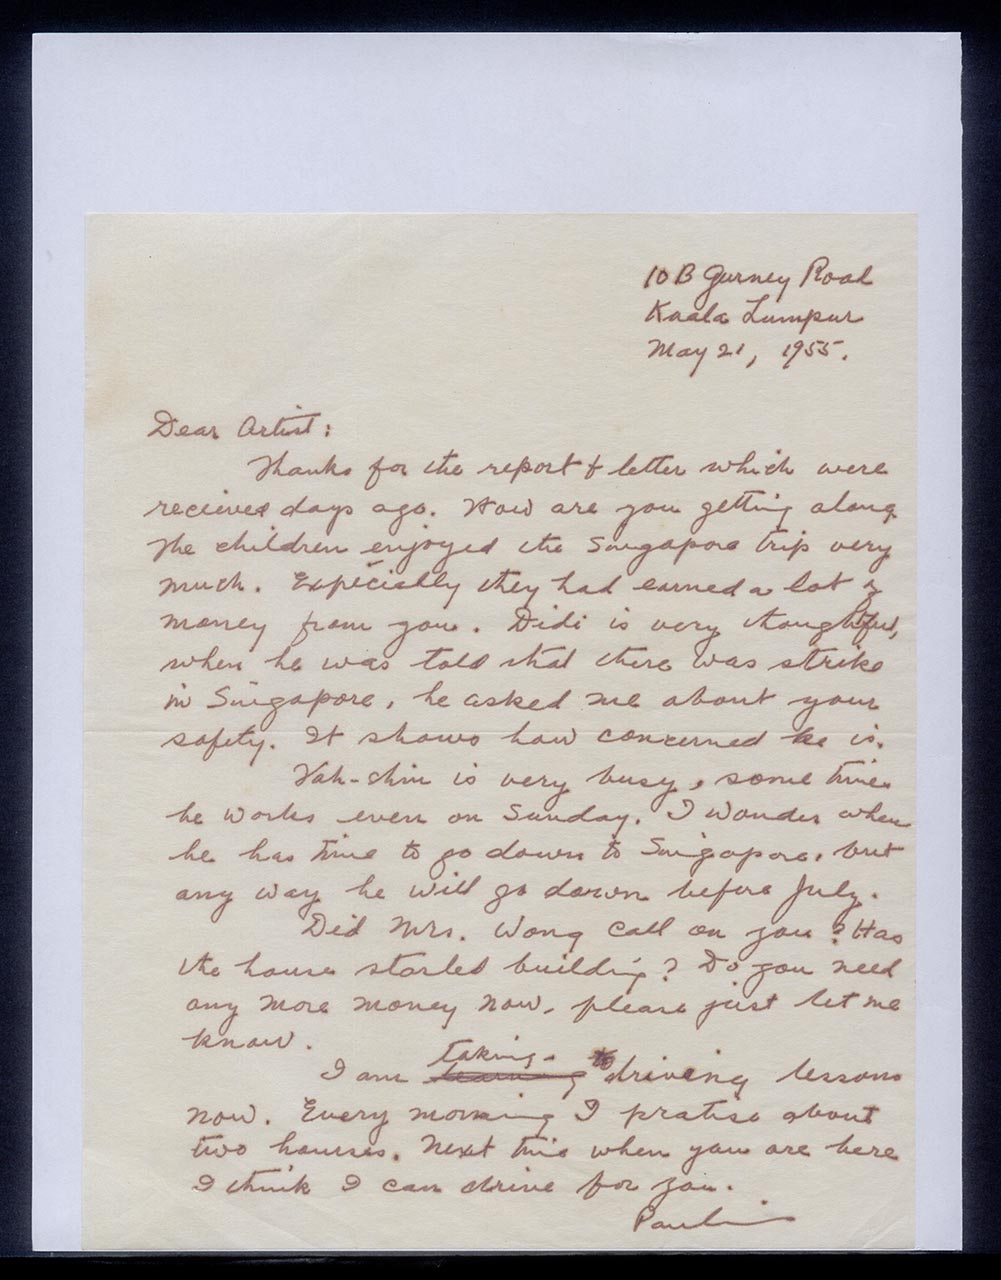 10 B Gurney Road
Kuala Lumpur
May 21, 1955.
Dear Artist:
Thanks for the report & letter which were
recieved days ago. How are you getting along
The children enjoyed the Singapore trip very
much. Expecially they had earned a lot of
money from you. Didi is very thoughtful,
when he was told that there was strike
in Singapore, he asked me about your
safety. It shows how concerned he is.
Yah-chin is very busy, some time
he works even on Sunday. I wonder when
he has time to go down to Singapore, but
any way he will go down before July.
Did Mrs. Wong call on you? Has
the house started building? Do you need
any more money now, please just let me
know.
I am taking driving lessons
now. Every morning I pratise about
two hours. Next time when you are here
I think I can drive for you.
Pauline